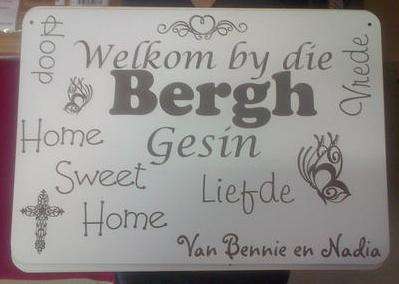 Vrede
Welkom by die
Bergh
Gesin
Home
Sweet
Home
Liefde
Van Bennie en Nadia